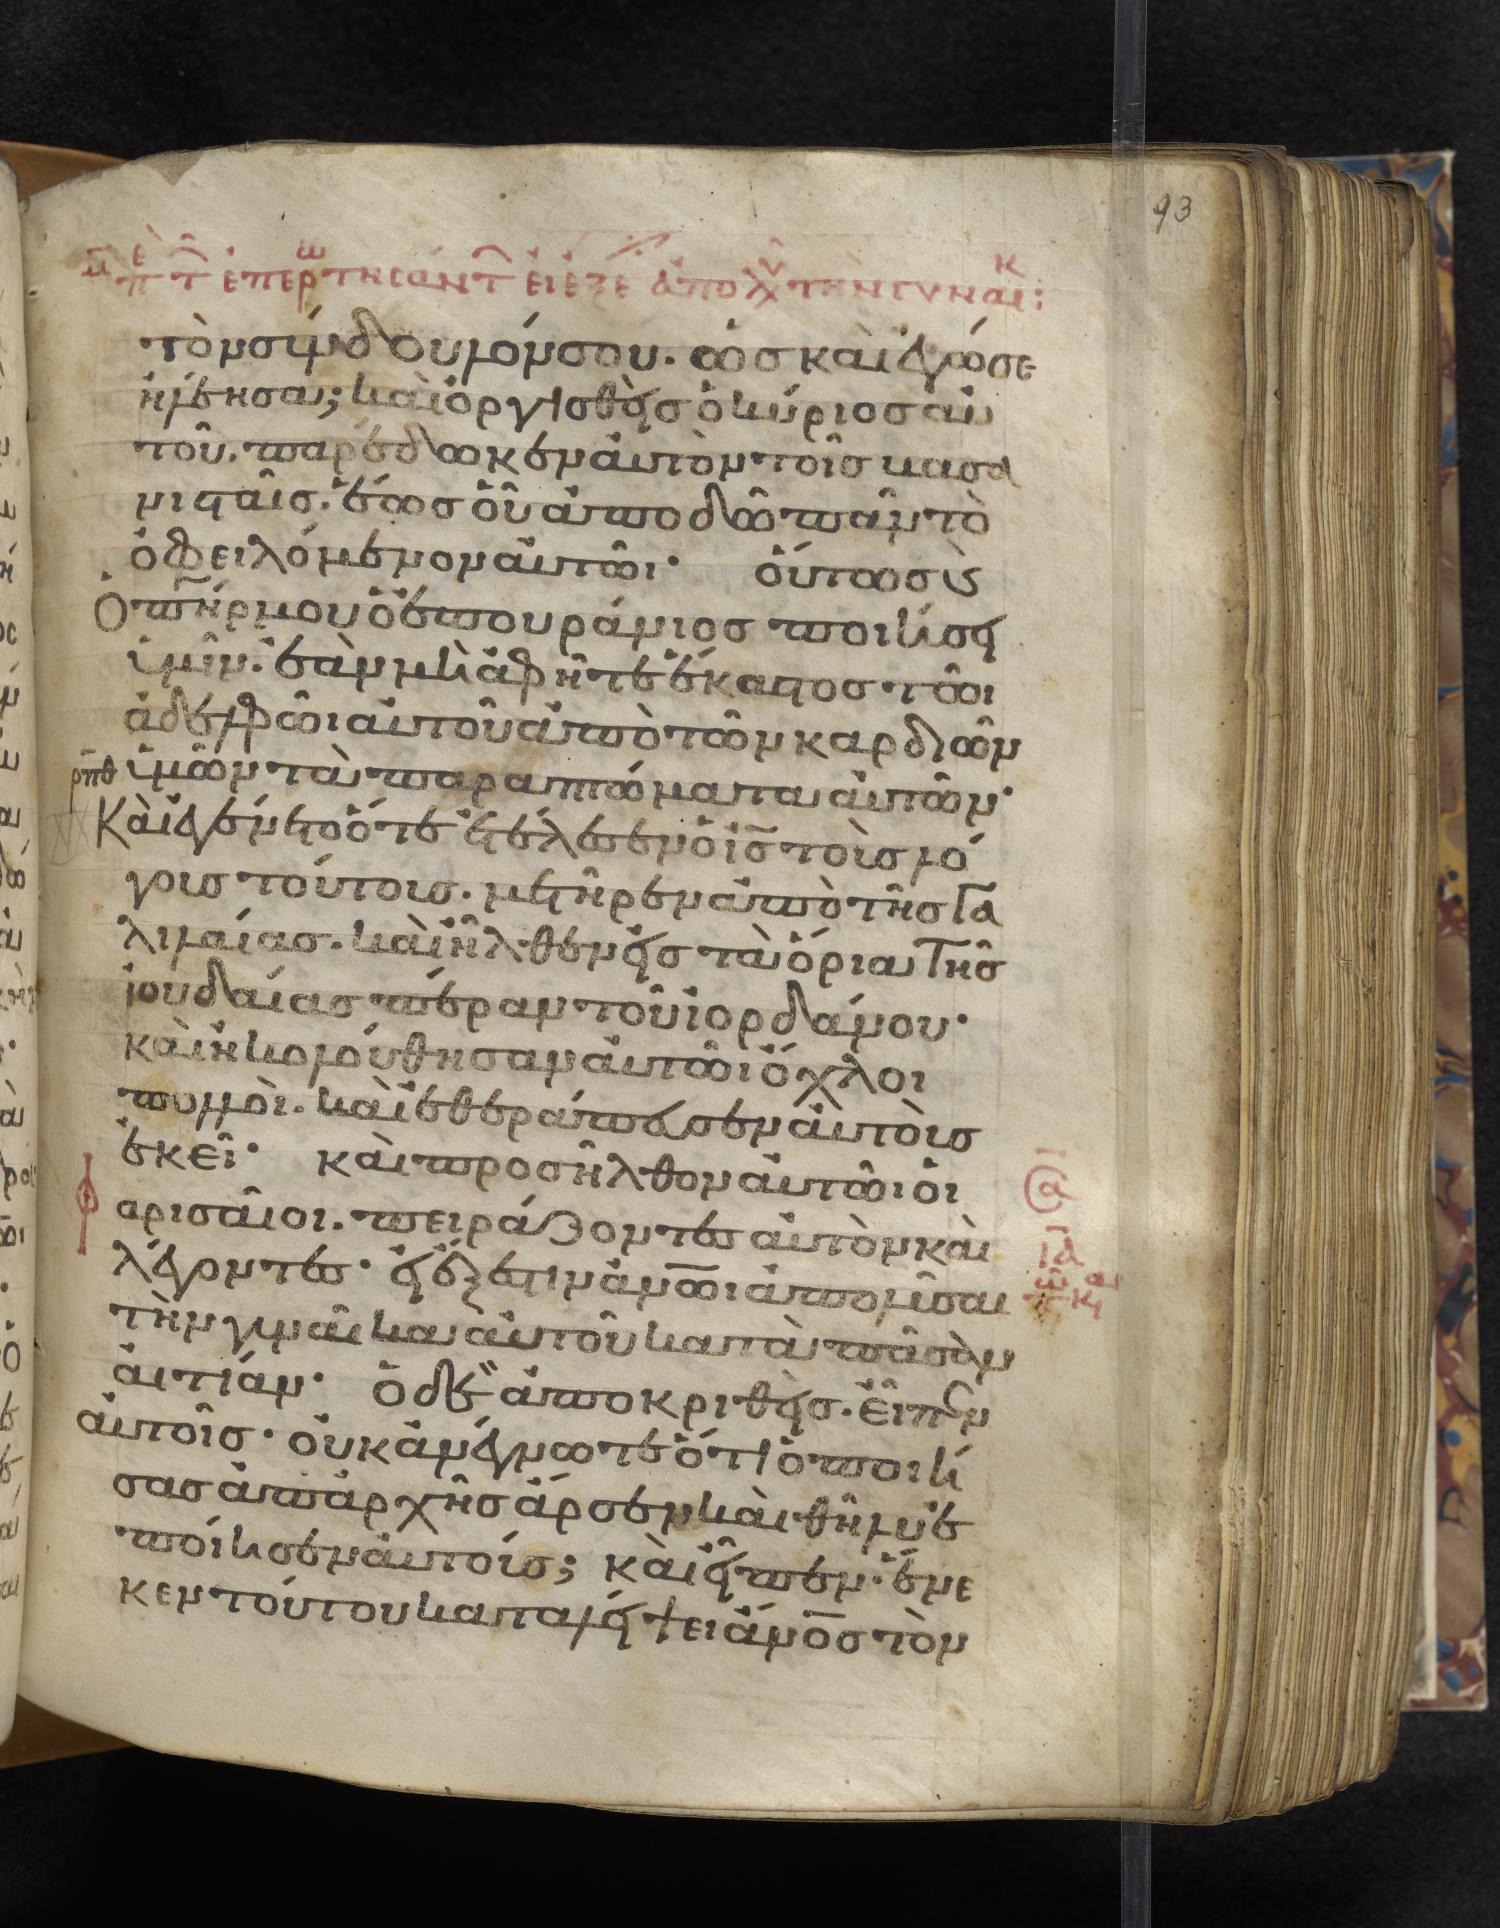 93
μ̅ πὲ τ̑ ἐπερωτησάντ̑ εἰ ἔξε ἀπολῦ τὴν γυναικ:
τὸν σύνδουλόν σου. ὡς καὶ ἐγώ σε
ἠλέησα; καὶ ὀργισθεὶς ὁ κύριος αὐ
τοῦ. παρέδωκεν αὐτὸν τοῖς βασα
νισταῖς. ἕως οὗ ἀποδῶ πᾶν τὸ
ὀφειλόμενον αὐτῶι· οὕτως ϗ
Ὁ π̅η̅ρ μου ὁ ἐπουράνιος ποιήσει
ὑμῖν. ἐὰν μὴ ἀφῆτε ἕκαστος τῶι
ἀδελφῶι αὐτοῦ ἀπὸ τῶν καρδιῶν
ρπθ ὑμῶν τὰ παραπτώματα αὐτῶν·
Καὶ ἐγένετο ὅτε ἐτέλεσεν ὁ ι̅ς̅ τοὺς λό
γους τούτους. μετῆρεν ἀπὸ τῆς Γα
λιλαίας. καὶ ἦλθεν εἰς τὰ ὅρια τῆς
ἰουδαίας πέραν τοῦ ἰορδάνου·
καὶ ἠκολούθησαν αὐτῶι ὄχλοι
πολλοὶ. καὶ ἐθεράπευσεν αὐτοὺς
ἐκεῖ· καὶ προσῆλθον αὐτῶι οἱ
φαρισαῖοι. πειράζοντες αὐτὸν καὶ
λέγοντες· εἰ ἔξεστιν ἀν̅ω̅ι ἀπολῦσαι
τὴν γυναῖκα αὐτοῦ κατὰ πᾶσαν
αἰτίαν· ὁ δὲ ἀποκριθεὶς. εἶπεν
αὐτοῖς· οὐκ ἀνέγνωτε ὅτι ὁ ποιή
σας ἀπαρχῆς ἄρσεν καὶ θῆλυ ἐ
ποίησεν αὐτούς; καὶ εἶπεν· ἕνε
κεν τούτου καταλείψει ἄν̅ο̅ς τὸν